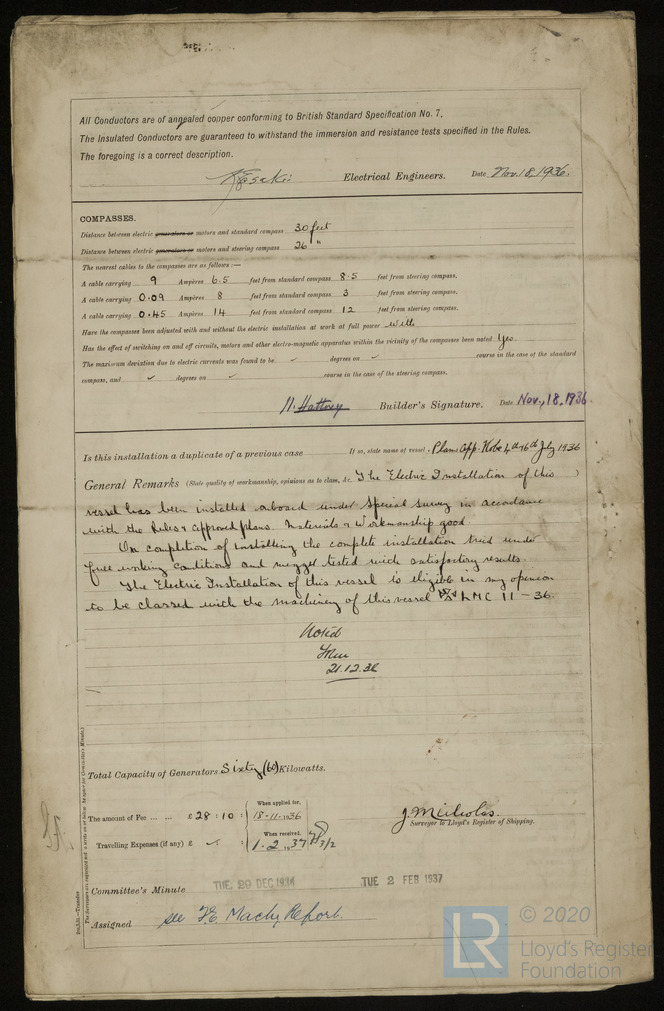 All Conductors are of annealed copper conforming to British Standard Specification No. 7.
The Insulated Conductors are guaranteed to withstand the immersion and resistance tests specified in the Rules.
The foregoing is a correct description.
Electrical Engineers. Date Nov. 18, 1936.
COMPASSES.
Distance between electric generators or motors and standard compass 30 feet
Distance between electric generators or motors and steering compass 26 "
The nearest cables to the compasses are as follows:—
A cable carrying 9 Ampères 6.5 feet from standard compass 8.5 feet from steering compass.
A cable carrying 0.09 Ampères 8 feet from standard compass 3 feet from steering compass.
A cable carrying 0.45 Ampères 14 feet from standard compass 12 feet from steering compass.
Have the compasses been adjusted with and without the electric installation at work at full power with
Has the effect of switching on and off circuits, motors and other electro-magnetic apparatus within the vicinity of the compasses been noted Yes.
The maximum deviation due to electric currents was found to be ✓ degrees on ✓ course in the case of the standard
compass, and ✓ degrees on ✓ course in the case of the steering compass.
Builder's Signature. Date Nov., 18, 1936.
Is this installation a duplicate of a previous case If so, state name of vessel. Plans App. Kobe 4th 16th July 1936
General Remarks (State quality of workmanship, opinions as to class, &c. The Electric Installation of this )
vessel has been installed onboard under Special Survey in accordance
with the Rules & approved plans. Materials & Workmanship good
On completion of installing the complete installation tried under
full working conditions and megger tested with satisfactory results
The Electric Installation of this vessel is eligible in my opinion
to be classed with the machinery of this vessel LMC 11-36.
Noted
21.12.36
Total Capacity of Generators Sixty (60) Kilowatts.
The amount of Fee ... ... £ 28 : 10 : When applied for, 18-11-1936
Travelling Expenses (if any) £ ✓ : When received, 1.2.1937
J. M Nicholas.
Surveyor to Lloyd's Register of Shipping.
Committee's Minute TUE 29 DEC 1936 TUE 2 FEB 1937
Assigned see F.E. Machy Report.
LR
© 2020
Lloyd's Register
Foundation